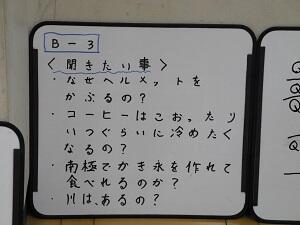 B-3
〈聞きたい事〉
・なぜヘルメットを
かぶるの?
・コーヒーはこおったり
いつぐらいに冷めたく
なるの?
・南極でかき氷を作れて
食べれるのか?
・川は、あるの?